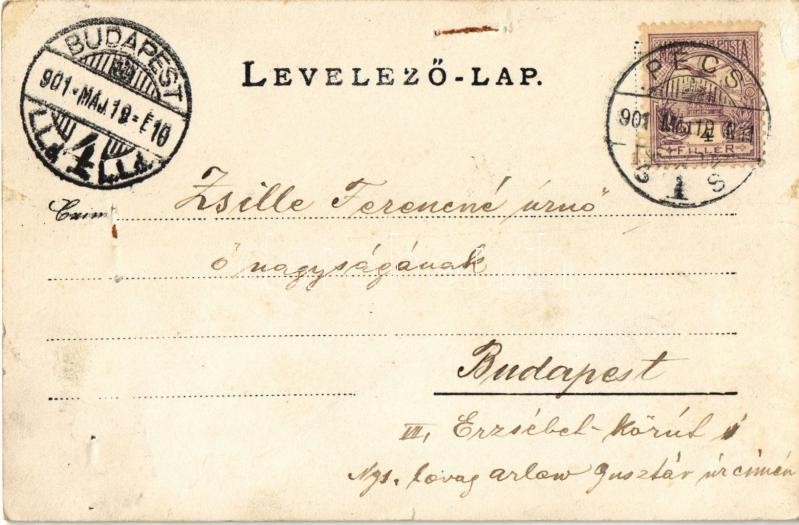 BUDAPEST
901 MÁJ. 19 É 10
LEVELEZŐ-LAP.
PÉCS
901 MÁJ. 19
4
FILLÉR
1
Zsille Ferencné úrnő
ő nagyságának
Budapest
VII, Erzsébet-körút
Ngs. lovag Arlow Gusztáv úrcimén